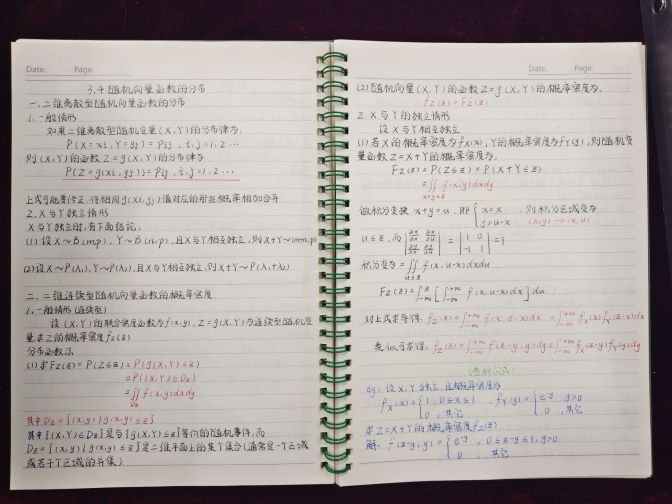 Date. Page.
3.4 随机向量函数的分布
一、二维离散型随机向量函数的分布
1.一般情形
如果二维离散型随机变量(X,Y)的分布律为.
P(X=xi, Y=yj)=Pij, i,j=1,2...
则(X,Y)的函数Z=g(X,Y)的分布律为
P(Z=g(xi,yj))=Pij, i,j=1,2,...
上式可能要修正,将相同g(xi,yj)值对应的那些概率相加合并
2.X与Y独立情形
X与Y独立时,有下面结论:
(1)设X~B(m,p), Y~B(n,p),且X与Y相互独立,则X+Y~(m+n,p)
(2)设X~P(λ1),Y~P(λ2),且X与Y相互独立,则X+Y~P(λ1+λ2)
二、二维连续型随机向量函数的概率密度
1.一般情形(连续型)
设(X,Y)的联合密度函数为f(x,y), Z=g(X,Y)为连续型随机变
量求Z的概率密度fz(z)
分布函数法
(1)求Fz(z)=P(Z≤z)=P(g(X,Y)≤z)
=P((X,Y)∈Dz)
=∬Dz f(x,y)dxdy
其中Dz={(x,y)|g(x,y)≤z}
其中{(X,Y)∈Dz}是与{g(X,Y)≤z}等价的随机事件,而
Dz={(x,y)|g(x,y)≤z}是二维平面上的某个集合(通常是一个区域
或若干个区域的并集)
Date. Page.
(2)随机向量(X,Y)的函数Z=g(X,Y)的概率密度为.
fz(z)=F'z(z)
2.X与Y的独立情形
设X与Y相互独立
(1)若X的概率密度为fx(x),Y的概率密度为fY(y),则随机变
量函数Z=X+Y的概率密度为.
Fz(z)=P(Z≤z)=P(X+Y≤z)
=∬x+y≤z f(x,y)dxdy
做积分变换 x+y=u,即{x=x, y=u-x 则积分区域变为
(x,y)→(x,u)
u≤z,而|∂x/∂x ∂x/∂u; ∂y/∂x ∂y/∂u|=|1 0; -1 1|=1
积分变为=∬u≤z f(x,u-x)dxdu
Fz(z)=∫-∞^z[∫-∞^+∞ f(x,u-x)dx]du
对上式求导得:fz(z)=∫-∞^+∞ f(x,z-x)dx=∫-∞^+∞ fx(x)fY(z-x)dx
类似可求得:fz(z)=∫-∞^+∞ f(z-y,y)dy=∫-∞^+∞ fx(z-y)fY(y)dy
(卷积公式)
eg:设X,Y独立,且概率密度为
fx(x)={1, 0≤x≤1; 0, 其它 fY(y)={e^-y, y>0; 0, 其它
求Z=X+Y的概率密度fz(z)
解. f(z-y,y)={e^-y, 0≤z-y≤1,y>0
0, 其它